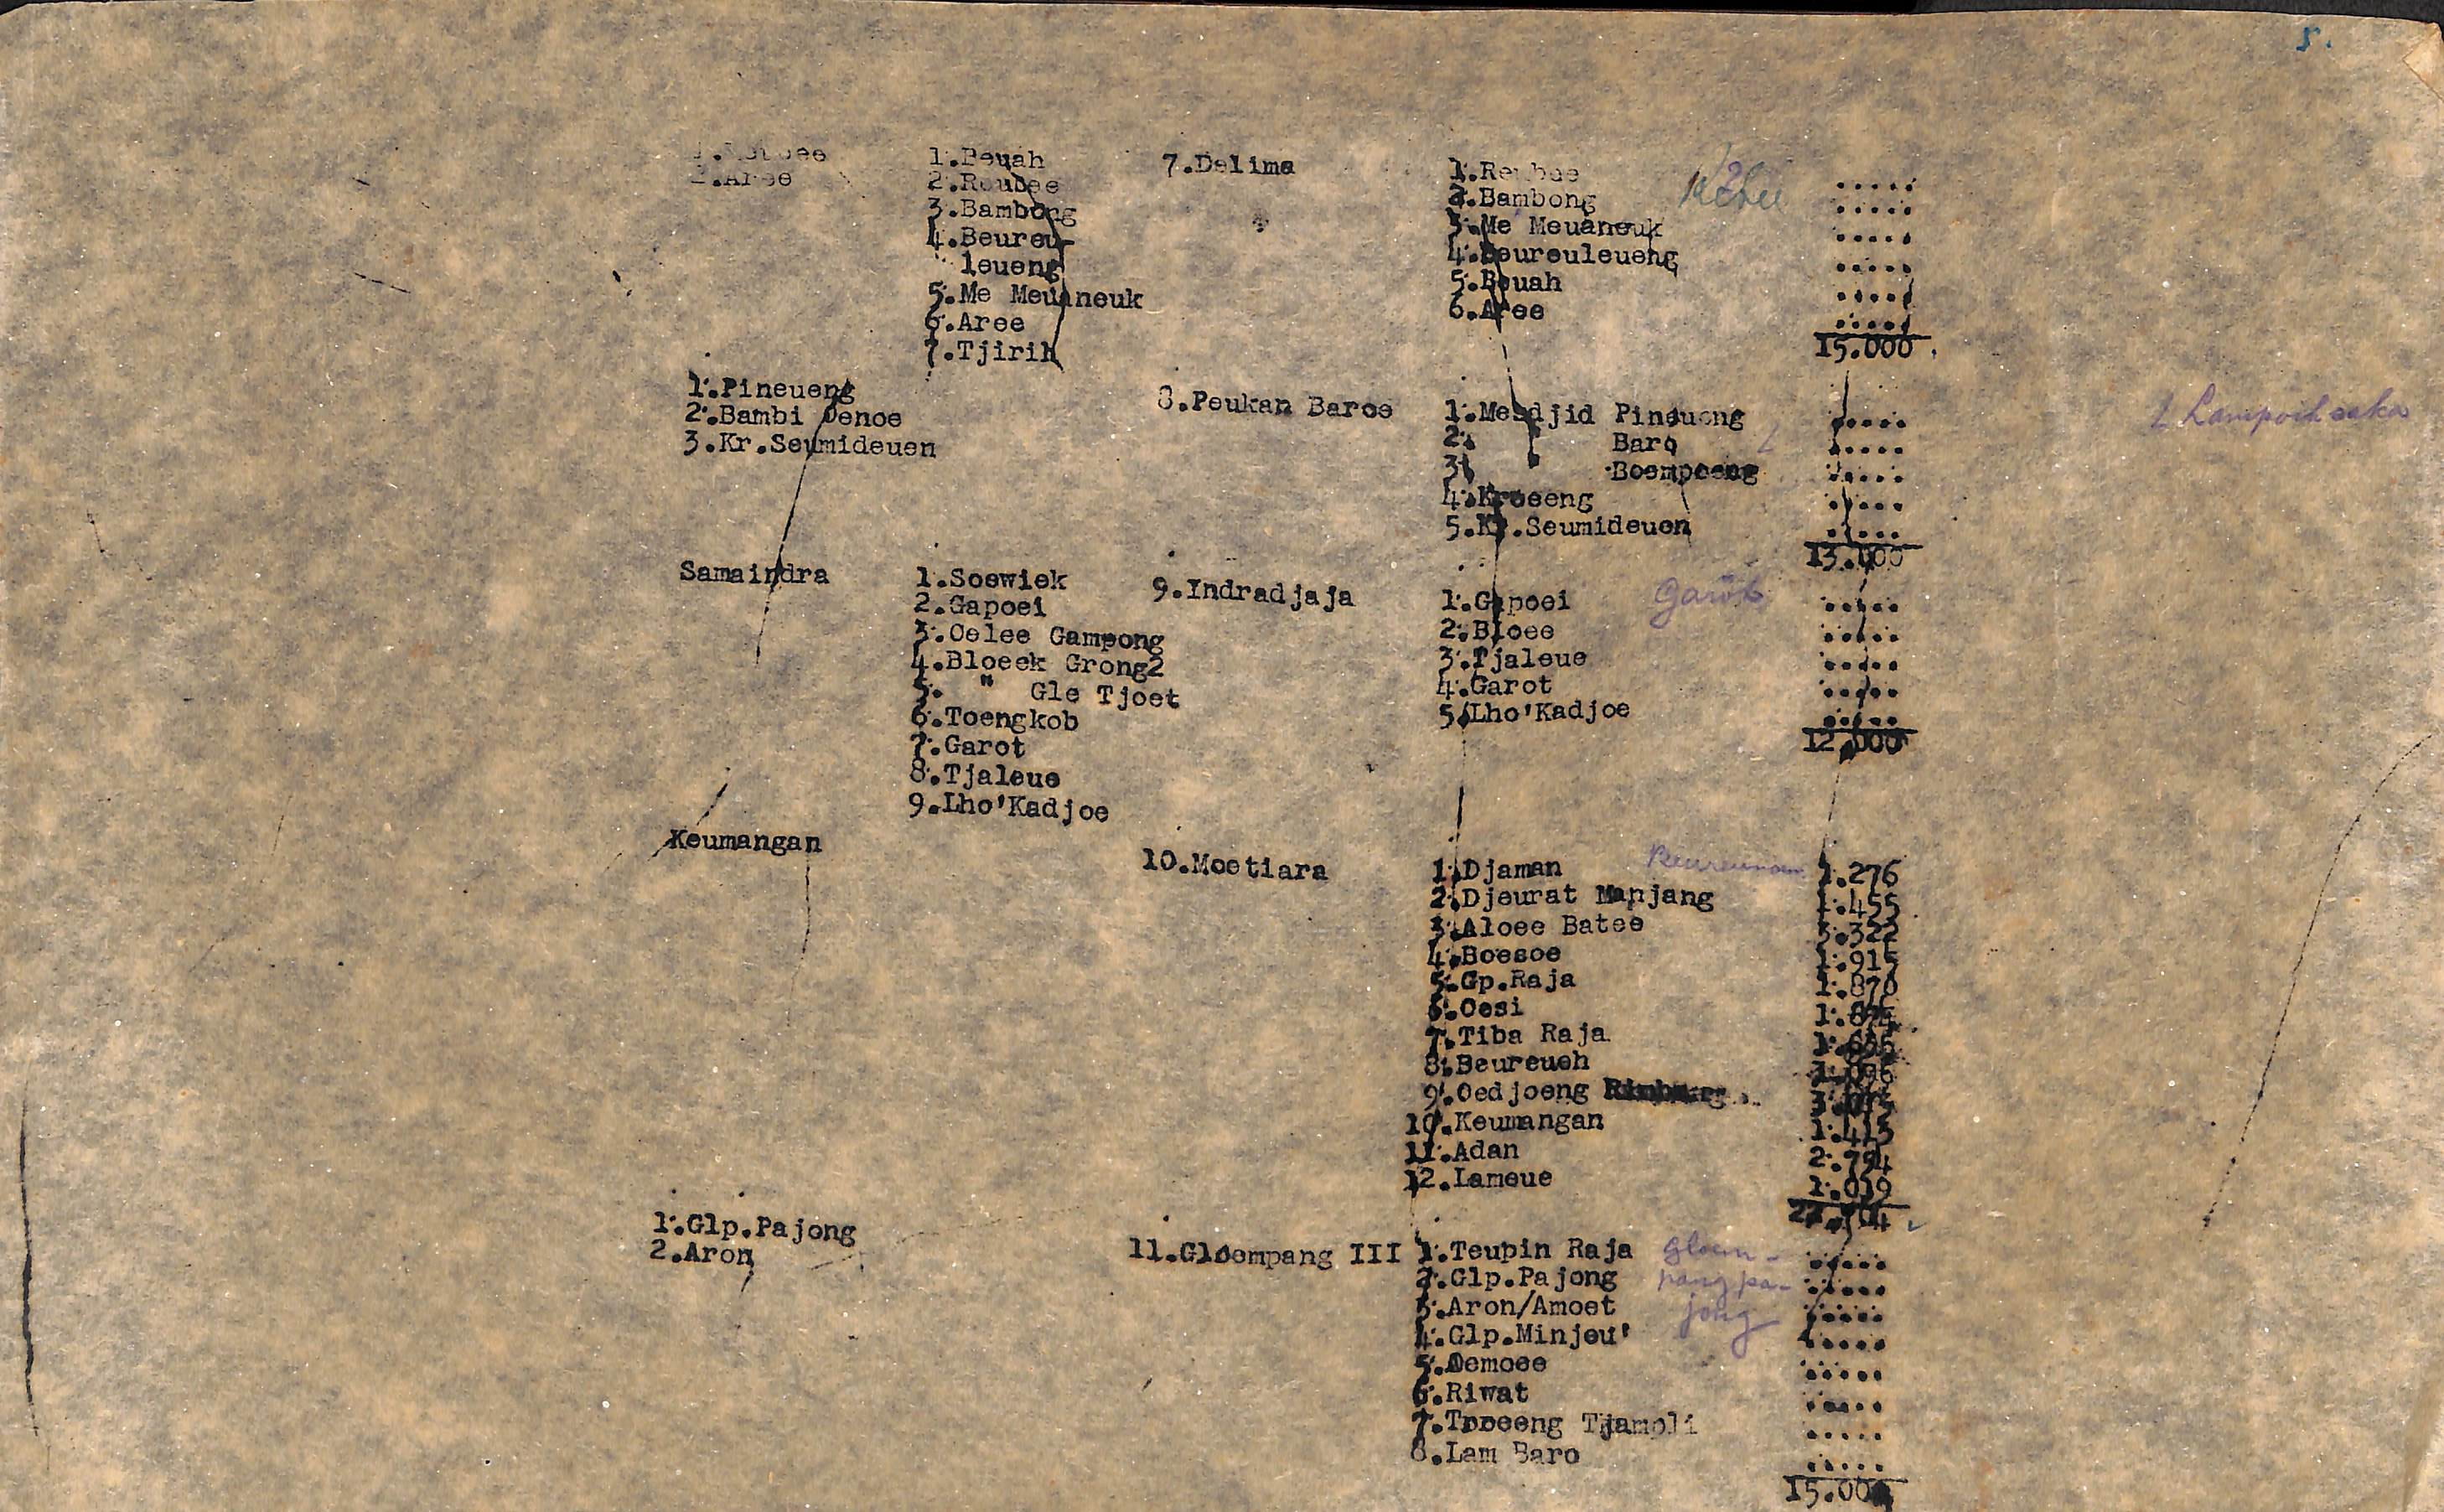 5.
2.Aree
1.Peuah
2.Reubee
3.Bambong
4.Beureu-
leueng
5.Me Meuaneuk
6.Aree
7.Tjirih
7.Delima
1.Reubee
2.Bambong
3.Me Meuaneuk
4.Beureuleueng
5.Peuah
6.Aree
.....
.....
.....
.....
.....
.....
15.000
1.Pineueng
2.Bambi Oenoe
3.Kr.Seumideuen
8.Peukan Baroe
1.Mesdjid Pineueng
2. " Baro
3. " Boempoeng
4.Kroeeng
5.Kr.Seumideuen
.....
.....
.....
.....
.....
13.000
L Lampoih saka
Samaindra
1.Soewiek
2.Gapoei
3.Oelee Gampong
4.Bloeek Grong2
5. " Gle Tjoet
6.Toengkob
7.Garot
8.Tjaleue
9.Lho'Kadjoe
9.Indradjaja
1.Gapoei
2.Bloee
3.Tjaleue
4.Garot
5.Lho'Kadjoe
Garot
.....
.....
.....
.....
.....
12.000
Keumangan
10.Moetiara
1.Djaman
2.Djeurat Manjang
3.Aloee Batee
4.Boesoe
5.Gp.Raja
6.Oesi
7.Tiba Raja
8.Beureueh
9.Oedjoeng
10.Keumangan
11.Adan
12.Lameue
Beureunoen
1.276
1.455
3.322
1.915
1.870
1.413
2.794
1.019
1.Glp.Pajong
2.Aron
11.Gloempang III
1.Teupin Raja
2.Glp.Pajong
3.Aron/Amoet
4.Glp.Minjeu'
5.Oemoee
6.Riwat
7.Troeeng Tjampli
8.Lam Baro
gloem-
pang pa-
jong
.....
.....
.....
.....
.....
.....
.....
.....
15.000